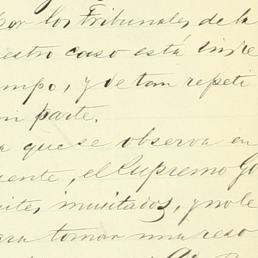 por los Tribunales de la
estro caso está impre
empo, y de tan repeti
mi parte.
a que se observa en
ente, el Supremo Go
ites inusitados, y no le
ara tomar una reso